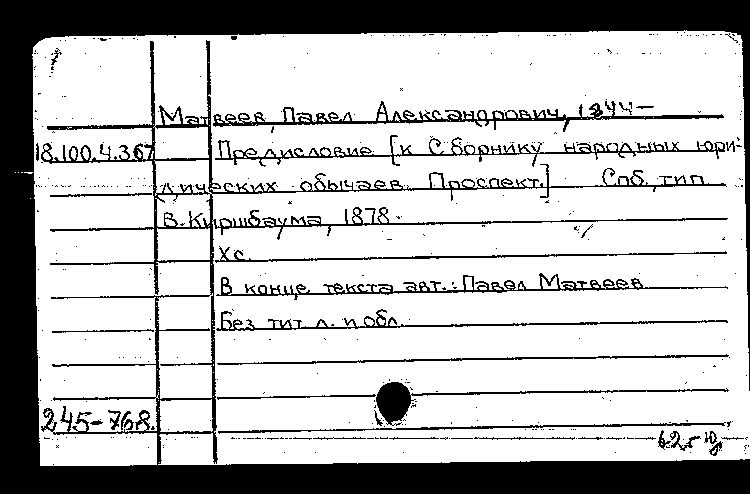 Матвеев, Павел Александрович, 1844—
18.100.4.367 Предисловие [к Сборнику народных юри-
дических обычаев. Проспект.] Спб., тип.
В. Киршбаума, 1878.
Xс.
В конце текста авт.: Павел Матвеев
Без тит. л. и обл.
245-768.